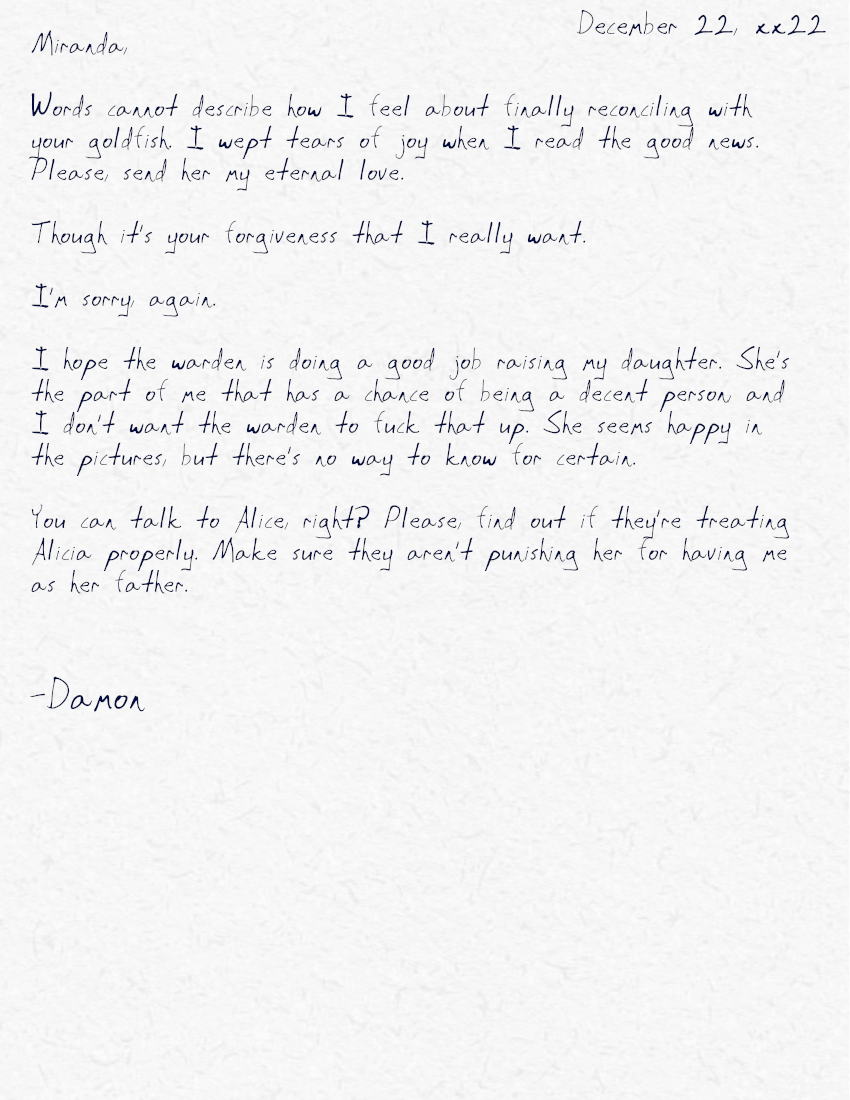 December 22, xx22
Miranda,
Words cannot describe how I feel about finally reconciling with
your goldfish. I wept tears of joy when I read the good news.
Please, send her my eternal love.
Though it's your forgiveness that I really want.
I'm sorry, again.
I hope the warden is doing a good job raising my daughter. She's
the part of me that has a chance of being a decent person and
I don't want the warden to fuck that up. She seems happy in
the pictures, but there's no way to know for certain.
You can talk to Alice, right? Please, find out if they're treating
Alicia properly. Make sure they aren't punishing her for having me
as her father.
-Damon